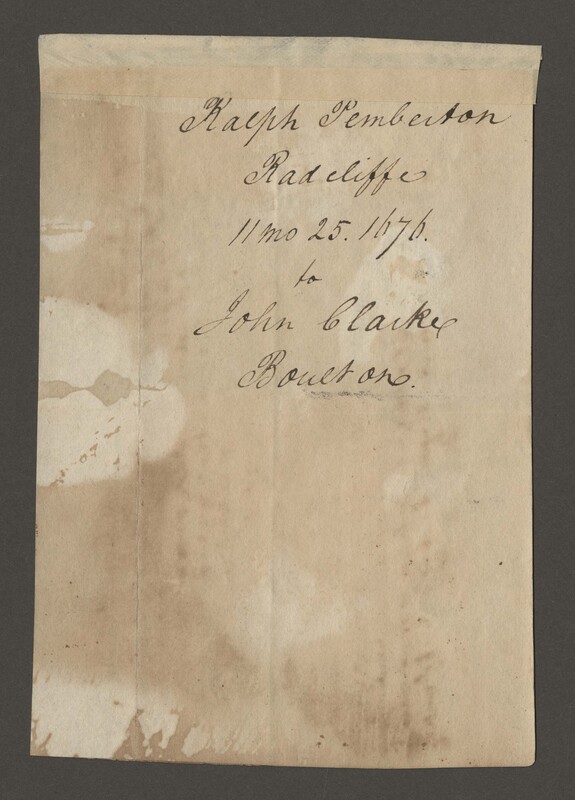 Ralph Pemberton
Radcliffe
11 mo 25. 1676.
to
John Clarke
Boulton.